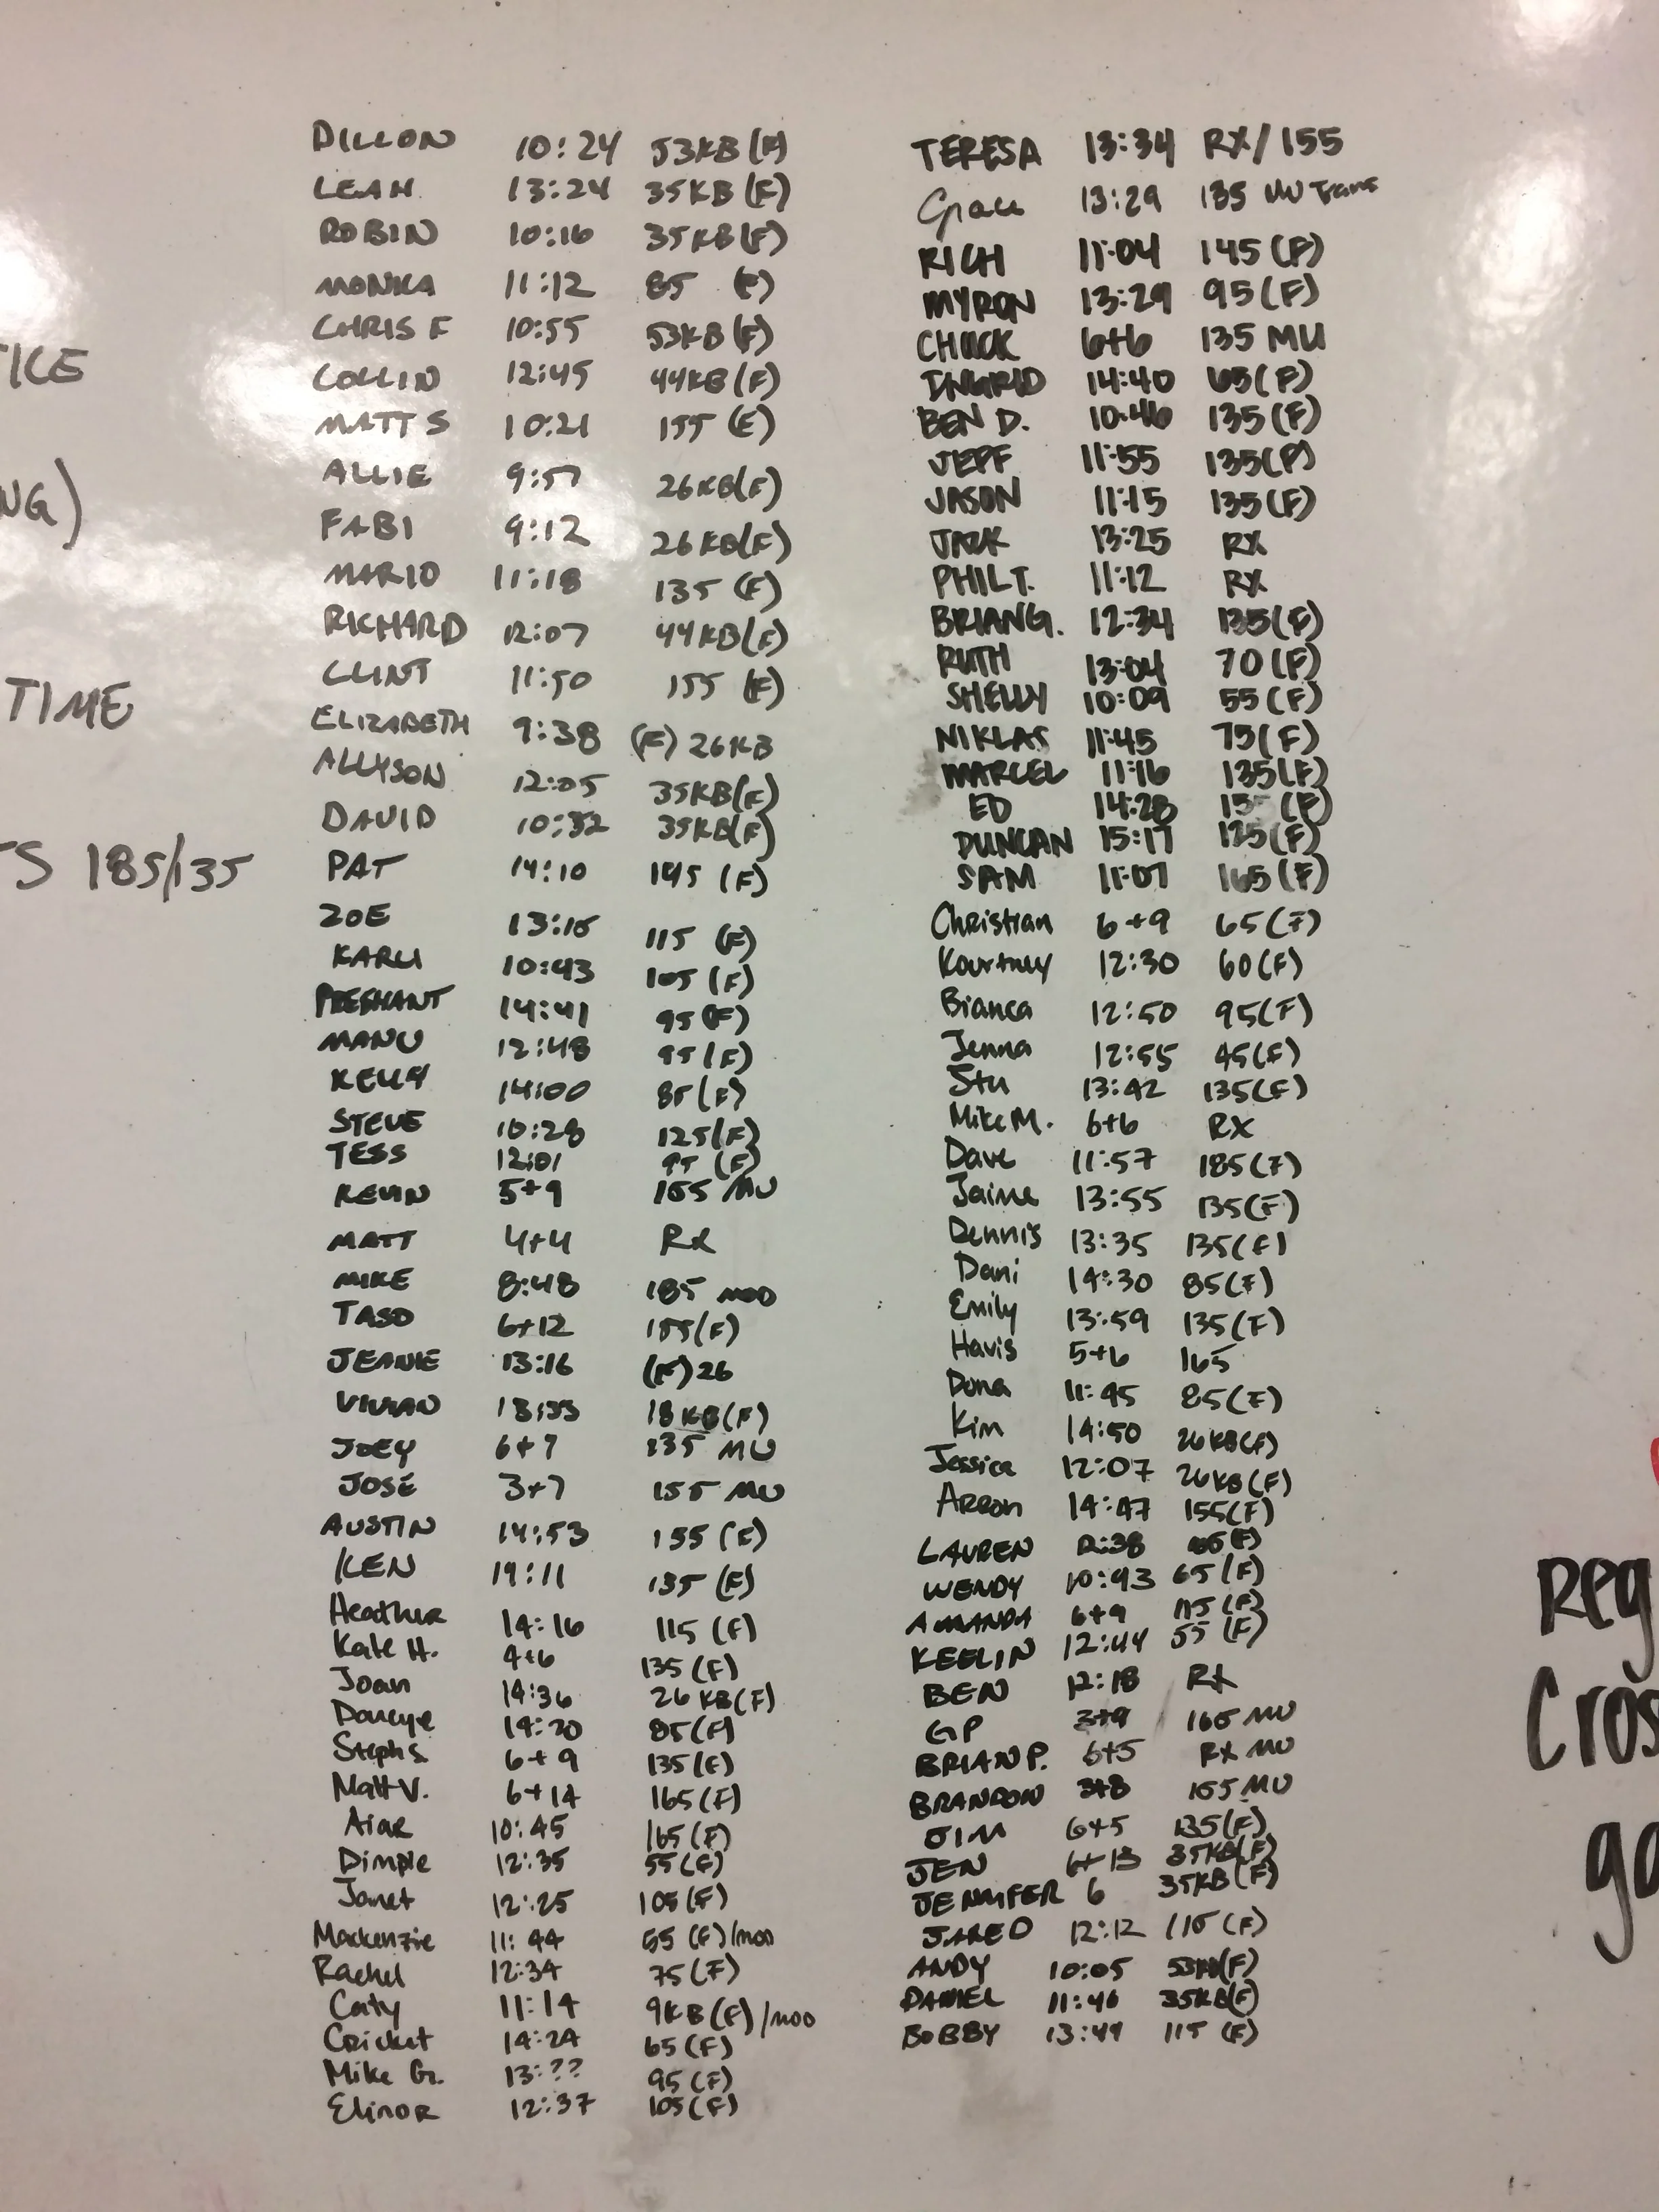 TICE
NG)
TIME
TS 185/135
DILLON 10:24 53KB (F)
LEAH 13:24 35KB (F)
ROBIN 10:16 35KB (F)
MONIKA 11:12 85 (F)
CHRIS F 10:55 53KB (F)
COLLIN 12:45 44KB (F)
MATT S 10:21 155 (F)
ALLIE 9:57 26KB (F)
FABI 9:12 26KB (F)
MARIO 11:18 135 (F)
RICHARD 12:07 44KB (F)
CLINT 11:50 155 (F)
ELIZABETH 9:38 (F) 26KB
ALLYSON 12:05 35KB (F)
DAVID 10:32 35KB (F)
PAT 14:10 145 (F)
ZOE 13:16 115 (F)
KARLI 10:43 105 (F)
PRESHANT 14:41 95 (F)
MANU 12:48 95 (F)
KELLY 14:00 85 (F)
STEVE 10:28 125 (F)
TESS 12:01 95 (F)
KEVIN 5+9 165 MU
MATT 4+4 RX
MIKE 8:48 185 MOD
TASO 6+12 155 (F)
JEANIE 13:16 (F) 26
VIVIAN 13:33 18KB (F)
JOEY 6+7 135 MU
JOSE 3+7 155 MU
AUSTIN 14:53 155 (F)
KEN 14:11 135 (F)
Heather 14:16 115 (F)
Kate H. 4+6 135 (F)
Joan 14:36 26 KB (F)
14:20 85 (F)
Steph S. 6+9 135 (F)
Matt V. 6+14 165 (F)
10:45 165 (F)
Dimple 12:35 55 (F)
Janet 12:25 105 (F)
Mackenzie 11:44 55 (F)/mod
Rachel 12:34 75 (F)
Caty 11:14 9KB (F)/mod
Cricket 14:24 65 (F)
Mike G. 13:?? 95 (F)
Elinor 12:37 105 (F)
TERESA 13:34 RX/155
Grace 13:29 135 MU Trans
RICH 11:04 145 (F)
MYRON 13:29 95 (F)
CHUCK 6+6 135 MU
INGRID 14:40 65 (F)
BEN D. 10:46 135 (F)
JEFF 11:55 135 (F)
JASON 11:15 135 (F)
JACK 13:25 RX
PHIL T. 11:12 RX
BRIAN G. 12:34 135 (F)
RUTH 13:04 70 (F)
SHELLY 10:09 55 (F)
NIKLAS 11:45 75 (F)
MARCEL 11:16 135 (F)
ED 14:28 (F)
DUNCAN 15:17 125 (F)
SAM 11:07 165 (F)
Christian 6+9 65 (F)
Kourtney 12:30 60 (F)
Bianca 12:50 95 (F)
Jenna 12:55 45 (F)
Stu 13:42 135 (F)
Mike M. 6+6 RX
Dave 11:57 185 (F)
Jaime 13:55 135 (F)
Dennis 13:35 135 (F)
Dani 14:30 85 (F)
Emily 13:59 135 (F)
Havis 5+6 165
Dona 11:45 85 (F)
Kim 14:50 26KB (F)
Jessica 12:07 26KB (F)
Arron 14:47 155 (F)
LAUREN 12:38 (F)
WENDY 10:43 65 (F)
AMANDA 6+9 115 (F)
KEELIN 12:44 55 (F)
BEN 12:18 RX
GP 3+9 165 MU
BRIAN P. 6+5 RX MU
BRANDON 3+8 165 MU
JIM 6+5 135 (F)
JEN 6+13 35KB (F)
JENNIFER 6 35KB (F)
JARED 12:12 115 (F)
ANDY 10:05 53KB (F)
DANIEL 11:46 35KB (F)
BOBBY 13:49 115 (F)
Reg
Cros
ga